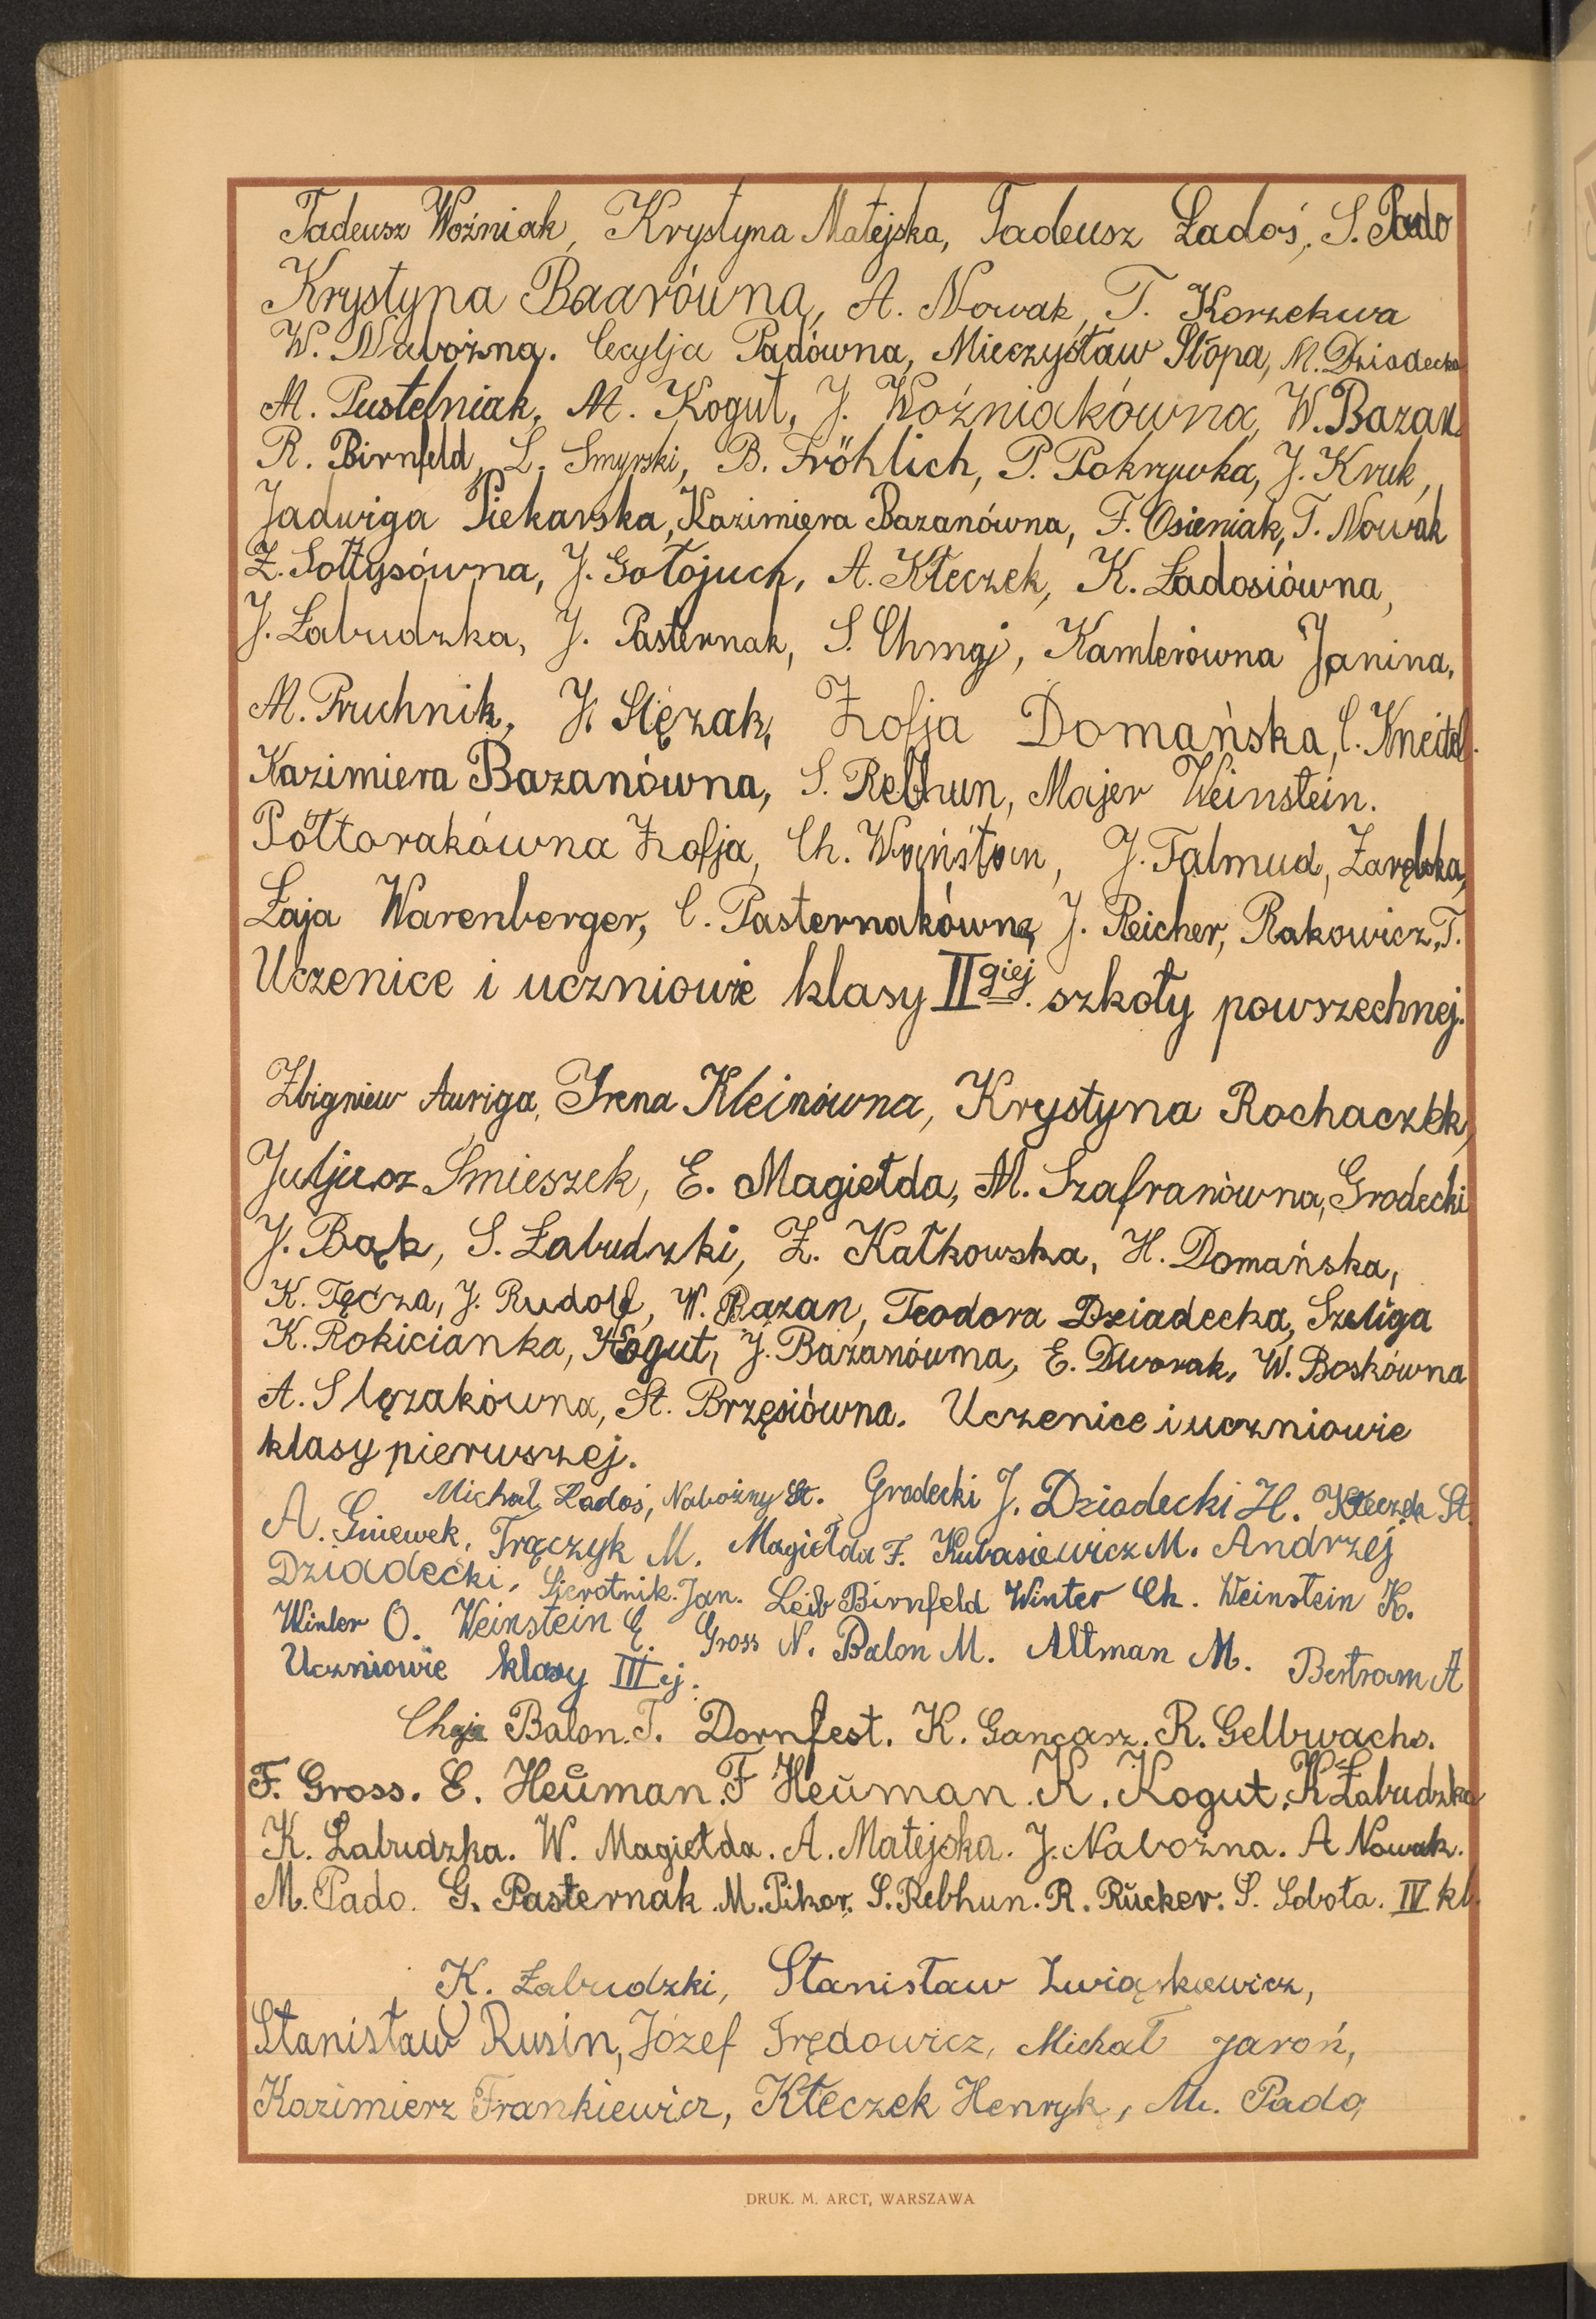 Tadeusz Woźniak, Krystyna Matejska, Tadeusz Ładoś, S. Pado
Krystyna Baarówna, A. Nowak, T. Korzekwa
W. Nabożna. Cecylja Padówna, Mieczysław Słopa, M. Dziadecka
M. Pustelniak, M. Kogut, J. Woźniakówna, W. Bazan
R. Birnfeld, L. Smyrski, B. Fröhlich, P. Pokrzywka, J. Kruk,
Jadwiga Piekarska, Kazimiera Bazanówna, F. Osieniak, T. Nowak
Z. Sołtysówna, J. Gołojuch, A. Kłeczek, K. Ładosiówna,
J. Łabudzka, J. Pasternak, S. Chmaj, Kamlerówna Janina,
M. Pruchnik, J. Slęzak, Zofja Domańska, C. Kneitel.
Kazimiera Bazanówna, S. Rebhun, Majer Weinstein.
Półtorakówna Zofja, Ch. J. Talmud, Zarębska,
Łaja Warenberger, C. Pasternakówna, J. Reicher, Rakowicz T.
Uczenice i uczniowie klasy II giej szkoły powszechnej.
Zbigniew Auriga, Irena Kleinówna, Krystyna Rochaczek,
Juljusz Smieszek, E. Magiełda, M. Szafranówna, Grodecki
J. Bąk, S. Łabudzki, Z. Kałkowska, H. Domańska,
K. Tęcza, J. Rudolf, W. Bazan, Teodora Dziadecka, Szeliga
K. Rokicianka, Kogut, J. Bazanówna, E. Dworak, W. Boskówna
A. Slęzakówna, St. Brzęsiówna. Uczenice i uczniowie
klasy pierwszej.
Michał Ładoś, Nabożny St. Grodecki J. Dziadecki H. Kłeczek St.
A. Gniewek, Trączyk M. Magiełda F. Kubasiewicz M. Andrzej
Dziadecki, Sierotnik Jan. Leib Birnfeld Winter Ch. Weinstein K.
Winter O. Weinstein E. Gross N. Balon M. Altman M. Bertram A
Uczniowie klasy III ej.
Chaja Balon. T. Dornfest. K. Gancarz. R. Gelbwachs.
F. Gross. E. Heuman. F Heuman. K. Kogut. K Łabudzka
K. Łabudzka. W. Magiełda. A. Matejska. J. Nabożna. A Nowak.
M. Pado. G. Pasternak. M. Pikor. S. Rebhun. R. Rücker. S. Sobota. IV kl.
K. Łabudzki, Stanisław Związkiewicz,
Stanisław Rusin, Józef Trędowicz, Michał Jaroń,
Kazimierz Frankiewicz, Kłeczek Henryk, M. Pado
DRUK. M. ARCT, WARSZAWA